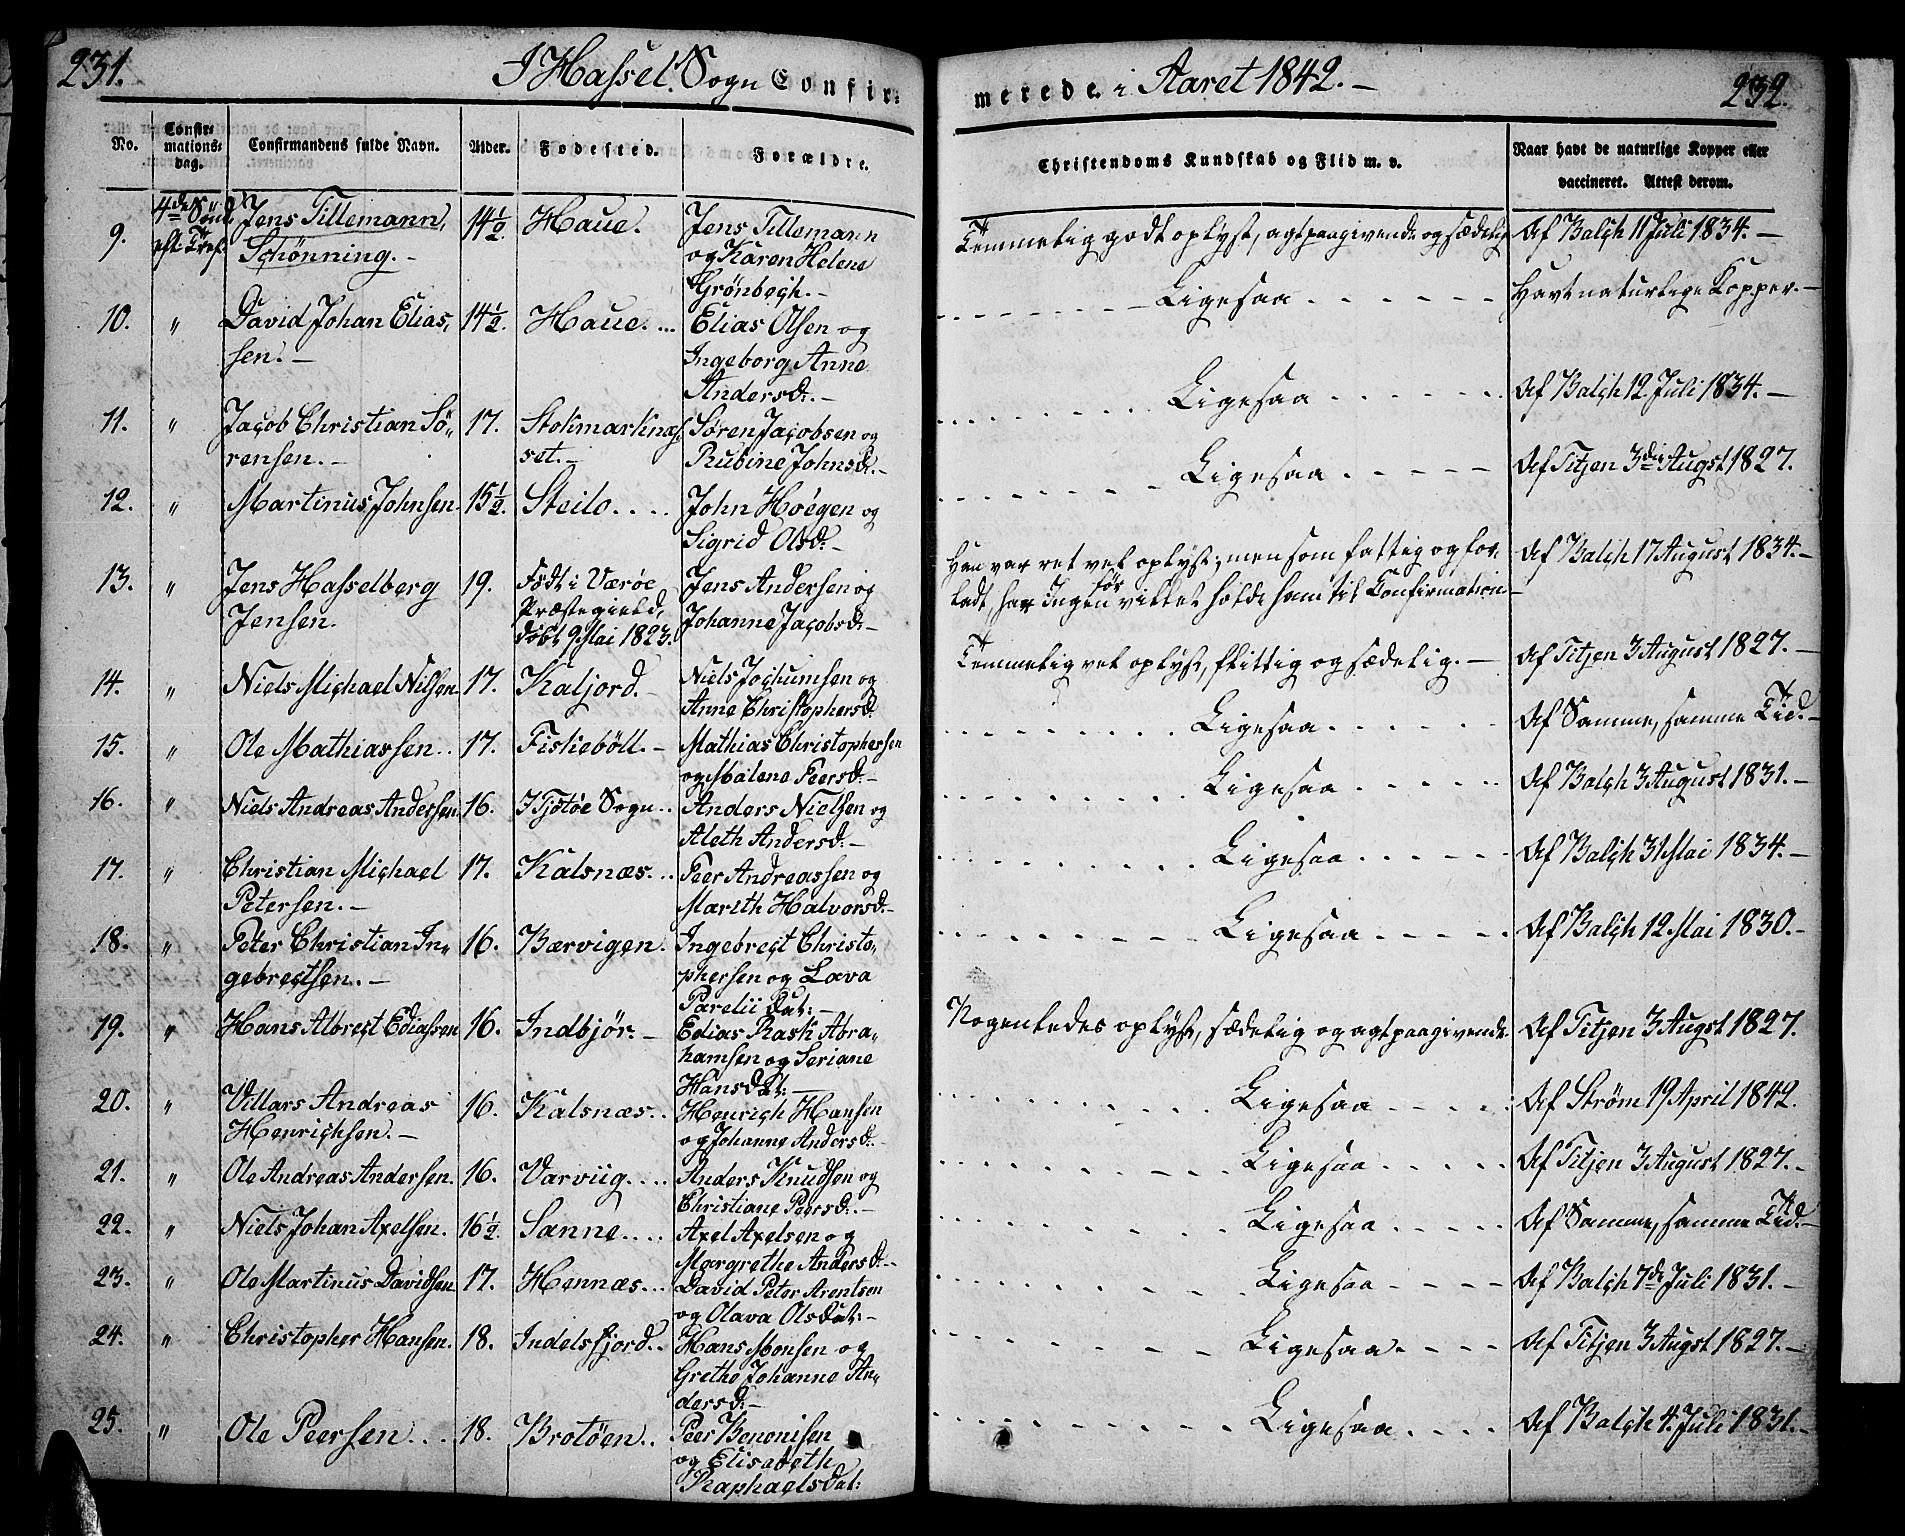 231.
I Hassel. Sogn Confir-
merede. i Aaret 1842. –
232.
No.
Confir-
mations-
dag.
Confirmandens fulde Navn.
Alder.
Fødested.
Forældre.
Christendoms Kundskab og Flid m. v.
Naar havt de naturlige Kopper eller
vaccineret. Attest derom.
9.
4de Sönd.
eft. Tref.
Jens Tillemann,
Schønning. –
14½
Haue.
Jens Tillemann
og Karen Helene
Grönbech. –
Temmelig godt oplyst, agtpaagivende og sædelig
Af Balch 11 Juli 1834. –
10.
"
David Johan Elias,
sen. –
14½.
Haue. ...
Elias Olsen og
Ingeborg Anne
Andersd:. –
Ligesaa
Havt naturlige Kopper. –
11.
"
Jacob Christian Sö,,
rensen. –
17.
Stokmarknæs,
set. –
Søren Jacobsen og
Rubine Johnsd:. –
Ligesaa
Af Balch 12. Juli 1834. –
12.
"
Martinus Johnsen.
15½.
Steilo. ...
John Hoégen og
Sigrid Olsd:. –
Ligesaa
Af Titjen 3die Augst 1827.
13.
"
Jens Hasselberg
Jensen.
19.
Födt i Værøe
Præstegield,
döbt 9 Mai 1823.
Jens Andersen og
Johanne Jacobsd:. –
Han var ret vel oplyst; men som fattig og for,
ladt, har Ingen før villet holde ham til Confirmation –
Af Balch 17 August 1834. –
14.
"
Niels Michael Nilsen.
17.
Kaljord. –
Niels Jochumsen og
Anne Christophersd.
Temmelig vel oplyst, flittig og sædelig. –
Af Titjen 3 August 1827. –
15.
"
Ole Mathiassen..
17.
Fiskeböll. –
Mathias Christophersen
og Malene Peersd:. –
Ligesaa
Af Samme, samme Tid. –
16.
"
Niels Andreas Andersen.
16.
I Tjötöe Sogn..
Anders Nielsen og
Aleth Andersd:. –
Ligesaa
Af Balch 3 August 1831. –
17.
"
Christian Michael
Petersen. –
17.
Kalsnæs. ..
Peer Andreassen og
Marith Halvorsd:. –
Ligesaa
Af Balch 31 Mai 1834. –
18.
"
Peter Christian In,,
gebrectsen. –
16.
Bærvigen.
Ingebrect Christo,
phersen og Lava
Parelii Dat:. –
Ligesaa
Af Balch 12 Mai 1830. –
19.
"
Hans Albrect Ediassen
16.
Indbjör. –
Edias Rask Abra,,
hamsen og Seriane
Hansdat:. –
Nogenledes oplyst, sædelig og agtpaagivende
Af Titjen 3 Augst 1827.
20.
"
Villars Andreas
Henrichsen. –
16.
Kalsnæs..
Henrich Hansen
og Johanne Andersd:.
Ligesaa
Af Strøm 19 April 1842.
21.
"
Ole Andreas Andersen.
16.
Varviig. ...
Anders Knudsen og
Christiane Peersd:. –
Ligesaa
Af Titjen 3 August 1827. –
22.
"
Niels Johan Axelsen.
16½.
Sanne. ...
Axel Axelsen og
Margrethe Andersd:. –
Ligesaa
Af Samme, samme Tid. –
23.
"
Ole Martinus Davidsen
17.
Hennæs...
David Peter Arentsen
og Olava Olsdat:. –
Ligesaa
Af Balch 7de Juli 1831. –
24.
"
Christopher Hansen.
18.
Indelsfjord..
Hans Monsen og
Grethe Johanne An,,
dersd:. –
Ligesaa
Af Titjen 3 Augst 1827. –
25.
"
Ole Peersen...
18.
Brotöen..
Peer Benonisen
og Elisabeth
Raphaelsdat:
Ligesaa
Af Balch 4. Juli 1831. –